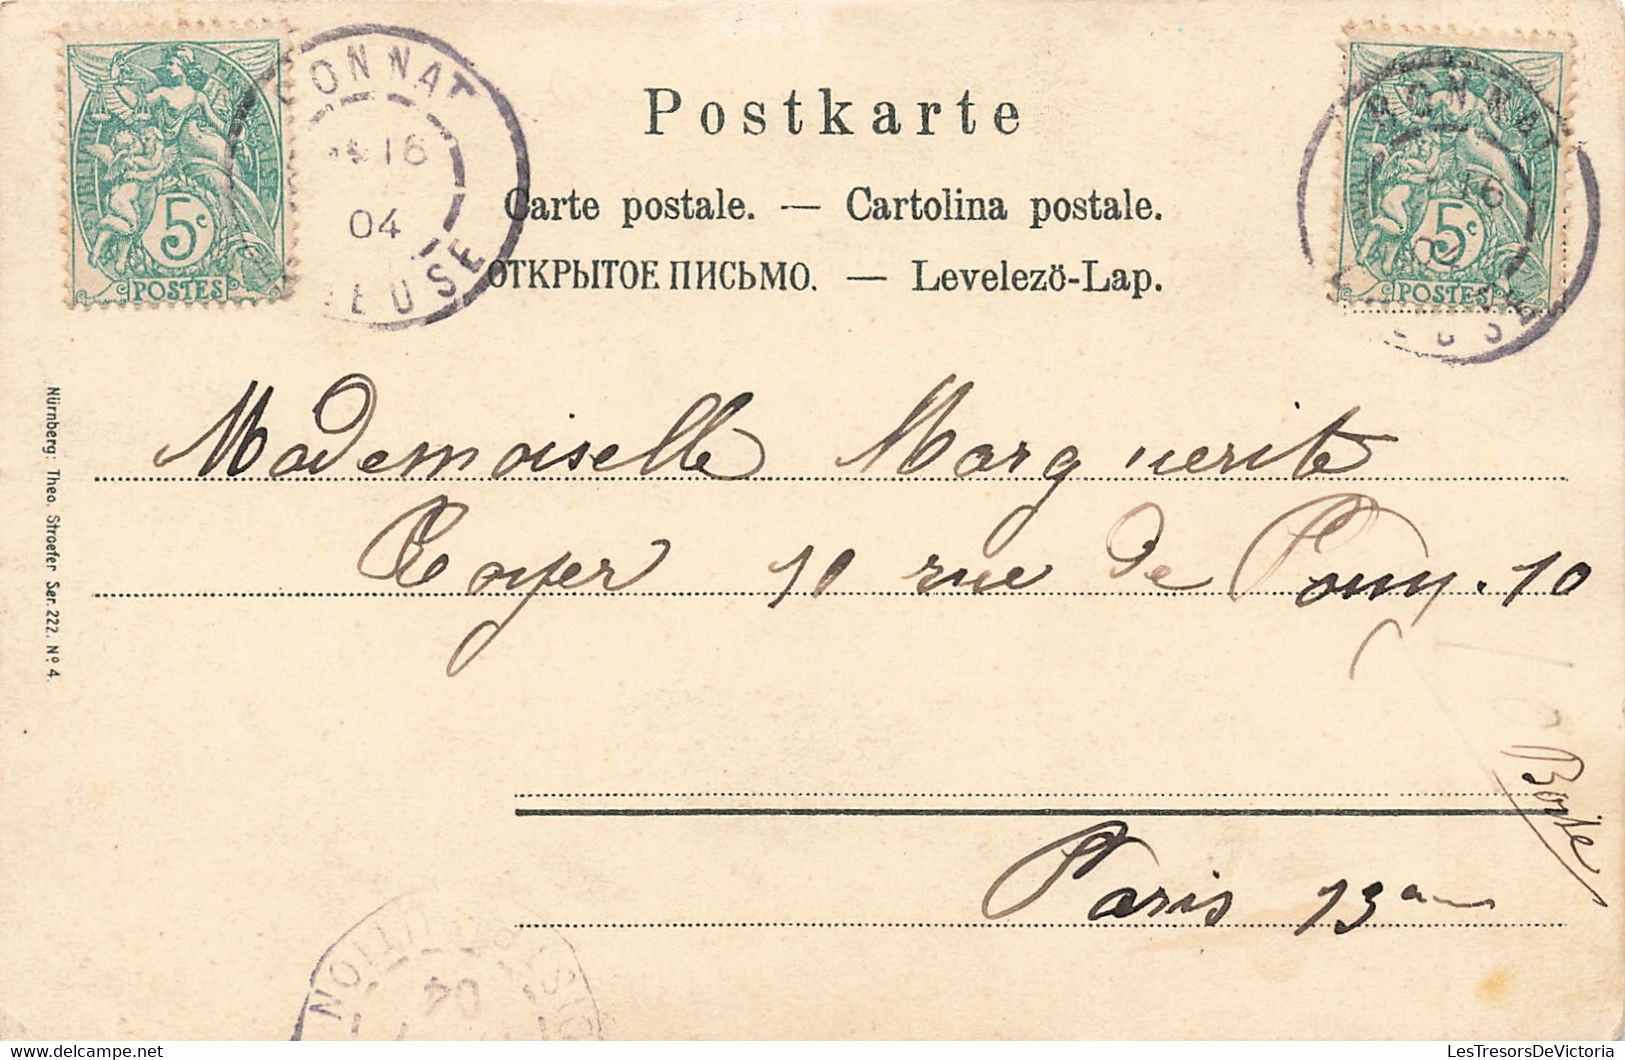 BONNAT
16
04
CREUSE
RÉPUBLIQUE FRANÇAISE
5c
POSTES
BONNAT
16
5c
POSTES
Postkarte
Carte postale. — Cartolina postale.
ОТКРЫТОЕ ПИСЬМО. — Levelező-Lap.
Nürnberg: Theo. Stroefer Ser. 222. Nº 4.
Mademoiselle Marguerite
Royer 10 rue de 10
Paris 13
04
LesTresorsDeVictoria